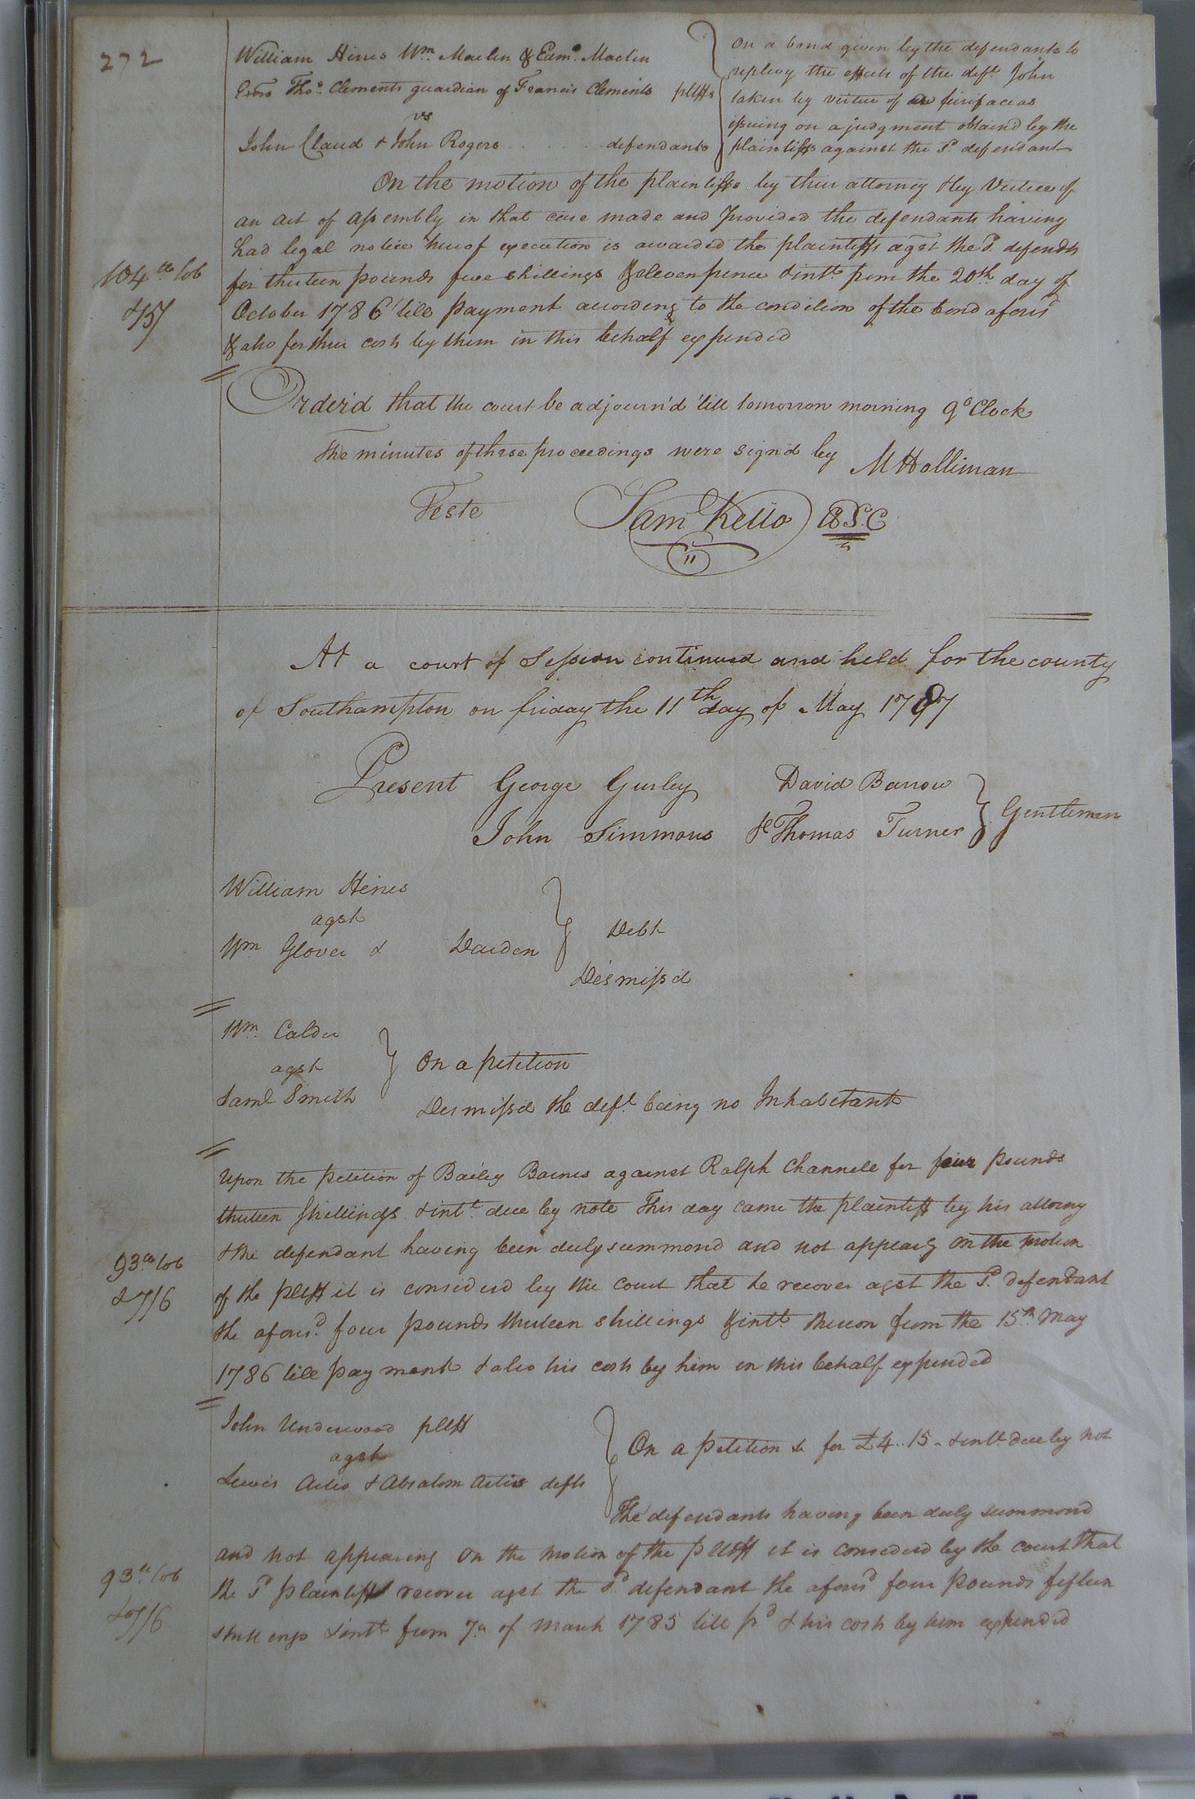 272
William Hines Wm. Maclin & Edmd. Maclin
Exors Thos. Clements guardian of Francis Clements pltffs
vs
John Claud & John Rogers defendants
On a bond given by the defendants to
replevy the effects of the deft. John
taken by virtue of a fierifacias
issuing on a judgment obtaind by the
plaintiffs against the sd. defendant
On the motion of the plaintiffs by their attorney & by Virtue of
an act of assembly in that case made and provided the defendants having
had legal notice hereof execution is awarded the plaintiffs agst the sd. defendts
for thirteen pounds five shillings & eleven pence & intt. from the 20th day of
October 1786 till payment according to the condition of the bond aforesd
& also for their costs by them in this behalf expended
104 lb tob
& 15/
Order'd that the court be adjourn'd 'till tomorrow morning 9 oClock
The minutes of these proceedings were sign'd by M Holliman
Teste Sam Kello CSC
At a court of Session continued and held for the county
of Southampton on friday the 11th day of May 1787
Present George Gurley David Barrow
John Simmons & Thomas Turner Gentlemen
William Hines
agst
Wm Glover & Darden
Debt
Dismissd
Wm. Calder
agst
Saml Smith
On a petition
Dismissd the deft. being no Inhabitant
Upon the petition of Bailey Barnes against Ralph Channell for four pounds
thirteen shillings & intt. due by note This day came the plaintiff by his attorney
& the defendant having been duly summond and not appearg on the motion
of the pltff it is considerd by the court that he recover agst the sd. defendant
the aforesd. four pounds thirteen shillings & intt. thereon from the 15th May
1786 till payment & also his costs by him in this behalf expended
93 lb tob
& 7/6
John Underwood pltff
agst
Lewis Artis & Absalom Artis defts
On a petition &c for £4..15- & intt. due by not
The defendants having been duly summond
and not appearing On the motion of the pltff it is considerd by the court that
the sd plaintiff recover agst the sd. defendant the aforesd four pounds fifteen
shillings & intt. from 7th of March 1785 till pd & his costs by him expended
93 lb tob
& 7/6